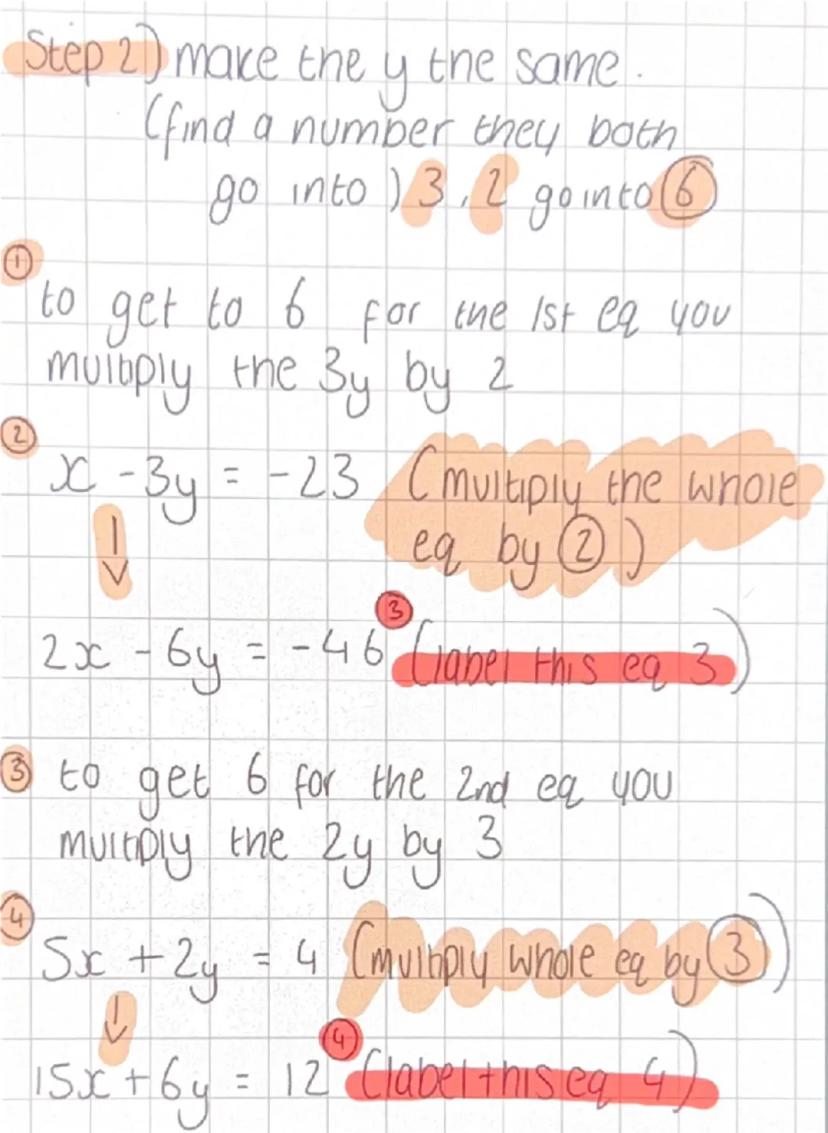 Step 2) make the y the same.
(find a number they both
go into) 3, 2 go into 6
①
to get to 6 for the 1st eq you
multiply the 3y by 2
②
x - 3y = -23 (multiply the whole
eq by ②)
↓
③
2x - 6y = -46 (label this eq 3)
③ to get 6 for the 2nd eq you
multiply the 2y by 3
④
5x + 2y = 4 (multiply whole eq by ③)
↓
④
15x + 6y = 12 (label this eq 4)